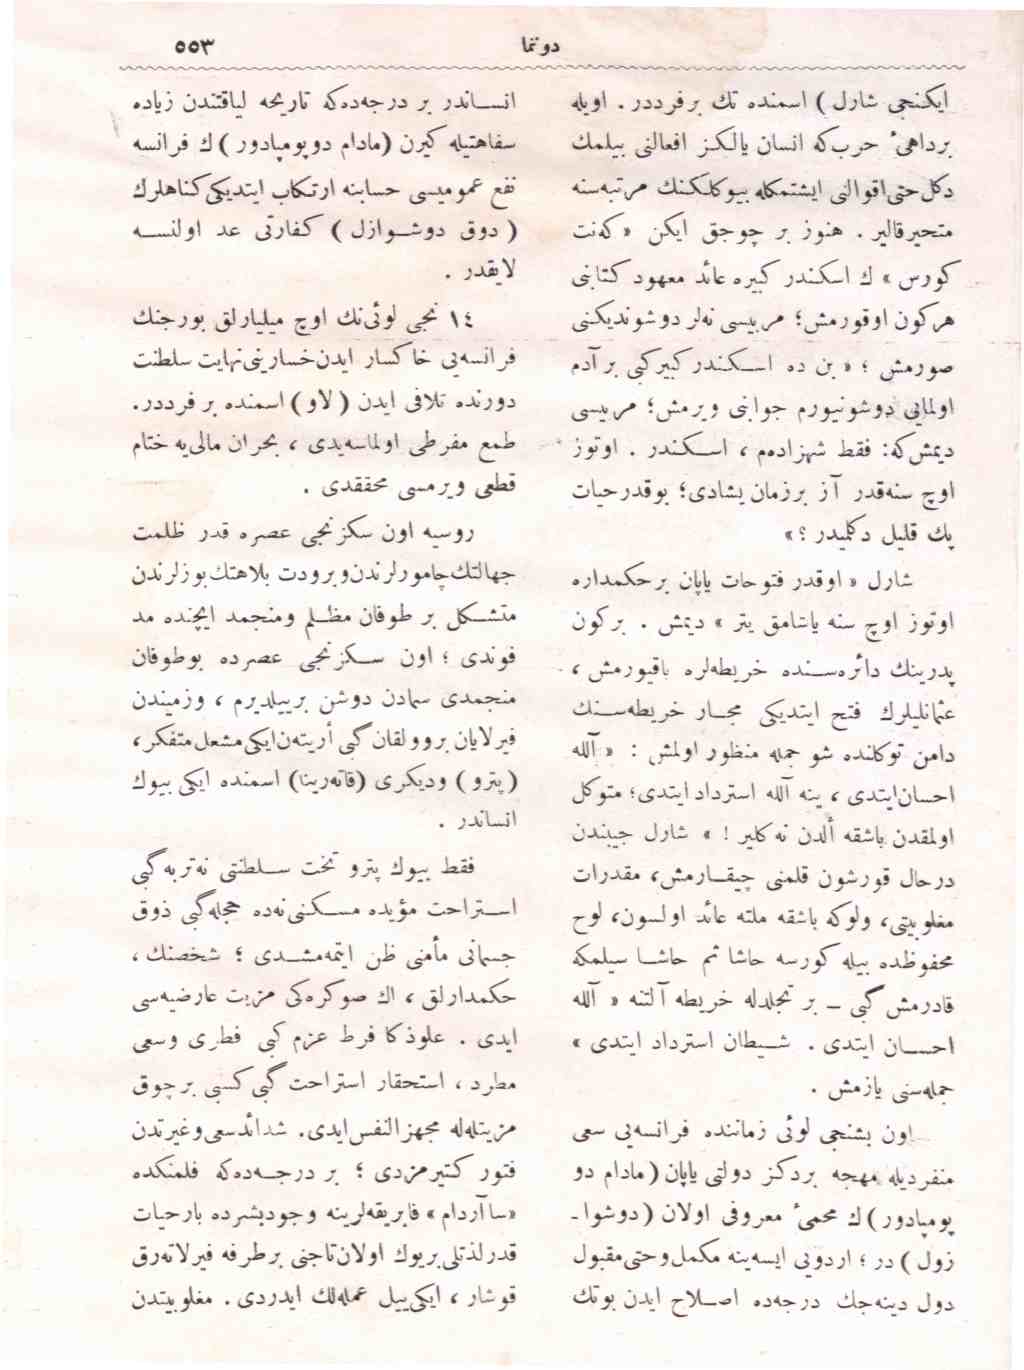 دوننما
٥٥٣
ایکنجی شارل ) اسمنده تك برفرددر . اویله
برداهیٔ حرب‌که انسان یالکـز افعالنی بیلمك
دکل‌حتی‌اقوالنی ایشتمکله بیوکلکـنك مرتبه‌سنه
متحیرقالیر . هنوز بر چوجق ایکن « که‌نت
کورس » ك اسکندر کبیره عائد معهود کتابنی
هرکون اوقورمش؛ مربیسی نه‌لر دوشوندیکنی
صورمش ؛ « بن ده اسـکندر کبیرکبی بر آدم
اولمایی دوشونیورم جوابنی ویرمش؛ مربیسی
دیمش‌که: فقط شهزاده‌م ، اسـکندر . اوتوز
اوچ سنه‌قدر آز برزمان یشادی؛ بوقدرحیات
پك قلیل دکلمیدر ؟ »
شارل « اوقدر فتوحات یاپان برحکمداره
اوتوز اوچ سنه یاشامق یتر » دیمش . برکون
پدرینك دائره‌سـنده خریطه‌لره باقیورمش ،
عثمانلیلرك فتح ایتدیکی مجـار خریطه‌سـنك
دامن توکانده شو جمله منظور اولمش : « آلله
احسان‌ایتدی ، ینه آلله استرداد ایتدی؛ متوکل
اولمقدن باشقه ألدن نه‌کلیر ! » شارل جیبندن
درحال قورشون قلمنی چیقـارمش، مقدرات
مغلوبیتی، ولوکه باشقه ملته عائد اولسون، لوح
محفوظده بیله کورسه حاشا ثم حاشـا سیلمکه
قادرمش کبی ــ بر تجلدله خریطه آلتنه « آلله
احسـان ایتدی . شـیطان استرداد ایتدی »
جمله‌سنی یازمش .
اون بشنجی لوئی زماننده فرانسه‌یی سعی
منفردیله مهجه بردکز دولتی یاپان ( مادام دو
پومپادور) ك محمیٔ معروفی اولان ( دوشواـ
زول ) در ؛ اردویی ایسه‌ینه مکمل‌وحتی‌مقبول
دول دینه‌جك درجه‌ده اصـلاح ایدن بوتك
انسـاندر بر درجه‌ده‌که تاریخه لیاقتندن زیاده
سفاهتیله کیرن (مادام دوپومپادور ) ك فرانسه
نفع عمومیسی حسابنه ارتکاب ایتدیکی‌کناهلرك
( دوق دوشـوازل ) کفارتی عد اولنسـه
لایقدر .
١٤ نجی لوئی‌نك اوچ میلیارلق بورجنك
فرانسه‌یی خاکسار ایدن‌خسارینی‌نهایت سلطنت
دورنده تلافی ایدن ( لاو ) اسمنده بر فرددر.
طمع مفرطی اولماسه‌یدی ، بحران مالی‌یه ختام
قطعی ویرمسی محققدی .
روسیه اون سکزنجی عصره قدر ظلمت
جهالتك‌چامورلرندن‌وبرودت بلاهتك‌بوزلرندن
متشـکل بر طوفان مظـلم ومنجمد ایچنده مد
فوندی ؛ اون سـکزنجی عصرده بوطوفان
منجمدی سمادن دوشن برییلدیرم ، وزمیندن
فیرلایان بروولقان کبی أریته‌ن‌ایکی‌مشعل‌متفکر،
( پترو ) ودیکری (قاته‌رینا) اسمنده ایکی بیوك
انساندر .
فقط بیوك پترو تخت سـلطنتی نه‌تربه‌کبی
اسـتراحت مؤیده مسـکنی‌نه‌ده حجله‌کبی ذوق
جسمانی مأمنی ظن ایتمه‌مشـدی ؛ شخصنك ،
حکمدارلق ، اك صوکره‌کی مزیت عارضیه‌سی
ایدی . علوذکا فرط عزم کبی فطری وسعی
مطرد ، استحقار استراحت کبی‌کسبی برچوق
مزیتله‌له مجهزالنفس‌ایدی. شدائدسعی‌وغیرتدن
فتور کتیرمزدی ؛ بر درجـه‌ده‌که فلمنکده
«ساآردام» فابریقه‌لرینه وجودبشرده بارحیات
قدرلذتلی‌بریوك اولان‌تاجنی برطرفه فیرلاته‌رق
قوشار ، ایکی‌ییل عمله‌لك ایدردی . مغلوبیتدن